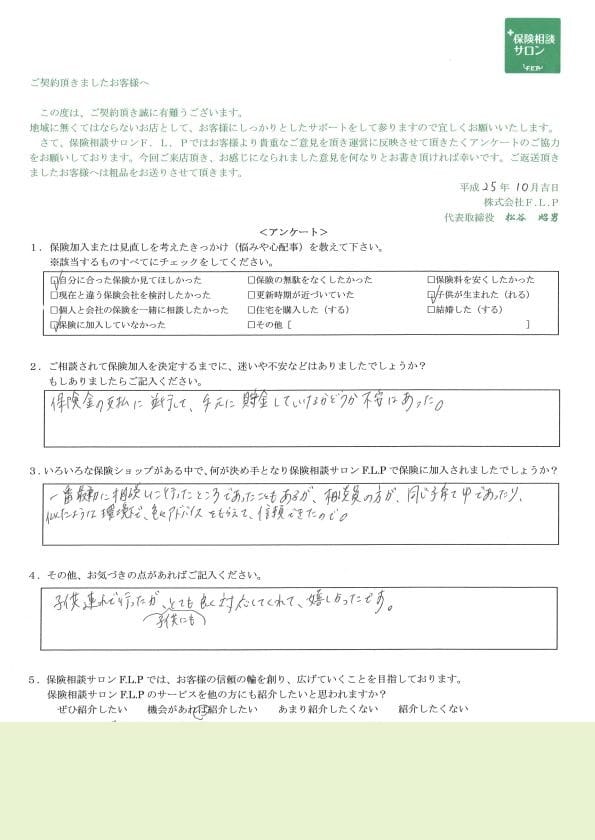 保険相談
サロン
F.L.P
ご契約頂きましたお客様へ
この度は、ご契約頂き誠に有難うございます。
地域に無くてはならないお店として、お客様にしっかりとしたサポートをして参りますので宜しくお願いいたします。
さて、保険相談サロンF．L．Pではお客様より貴重なご意見を頂き運営に反映させて頂きたくアンケートのご協力
をお願いしております。今回ご来店頂き、お感じになられました意見を何なりとお書き頂ければ幸いです。ご返送頂き
ましたお客様へは粗品をお送りさせて頂きます。
平成 25年 10月吉日
株式会社F.L.P
代表取締役 松谷 昭男
＜アンケート＞
１．保険加入または見直しを考えたきっかけ（悩みや心配事）を教えて下さい。
※該当するものすべてにチェックをしてください。
☑自分に合った保険か見てほしかった □保険の無駄をなくしたかった □保険料を安くしたかった
□現在と違う保険会社を検討したかった □更新時期が近づいていた ☑子供が生まれた（れる）
□個人と会社の保険を一緒に相談したかった □住宅を購入した（する） □結婚した（する）
☑保険に加入していなかった □その他［ ］
２．ご相談されて保険加入を決定するまでに、迷いや不安などはありましたでしょうか？
もしありましたらご記入ください。
保険金の支払に並行して、手元に貯金していけるかどうか不安はあった。
３.いろいろな保険ショップがある中で、何が決め手となり保険相談サロン F.L.P で保険に加入されましたでしょうか？
一番最初に相談しに行ったところであったこともあるが、相談員の方が、同じ子育て中であったり、
似たような環境で、色々アドバイスをもらえて、信頼できたので。
４．その他、お気づきの点があればご記入ください。
子供連れで行ったが、とても良く対応してくれて、嬉しかったです。
（子供にも）
５．保険相談サロン F.L.P では、お客様の信頼の輪を創り、広げていくことを目指しております。
保険相談サロン F.L.P のサービスを他の方にも紹介したいと思われますか？
ぜひ紹介したい 機会があれば紹介したい あまり紹介したくない 紹介したくない